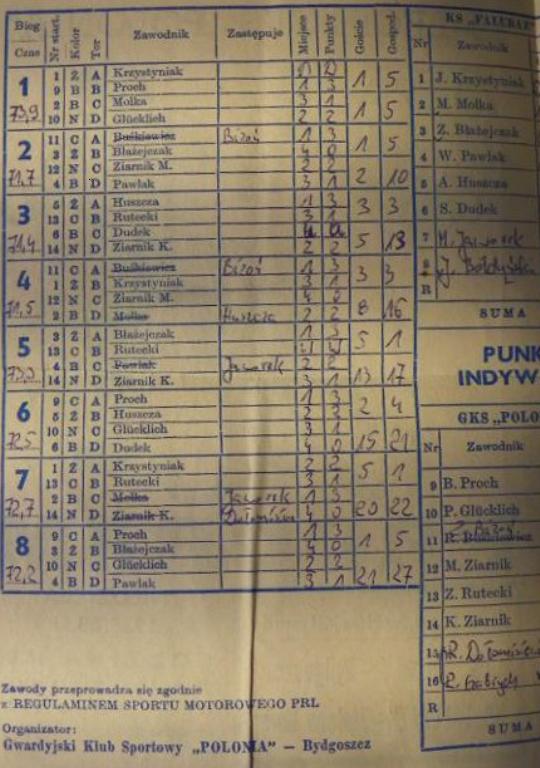 Bieg Czas Nr start. Kolor Tor Zawodnik Zastępuje Miejsce Punkty Goście Gospod.
1 1 Z A Krzystyniak D D 1 5
9 B B Proch 1 3
2 B C Molka 3 1 1 5
73,9 10 N D Glücklich 2 2
2 11 C A Buśkiewicz Bizoń 1 3 1 5
3 Z B Błażejczak 4 0
12 N C Ziarnik M. 2 2
71,7 4 B D Pawlak 3 1 2 10
3 5 Z A Huszcza 1 3 3 3
13 C B Rutecki 3 1
6 B C Dudek
71,4 14 N D Ziarnik K. 2 2 5 13
4 11 C A Buśkiewicz Bizoń 1 3 3 3
1 Z B Krzystyniak 3 1
12 N C Ziarnik M. 4 0
71,5 2 B D Molka Huszcza 2 2 8 16
5 3 Z A Błażejczak 1 3 5 1
13 C B Rutecki
4 B C Pawlak Jaworek 2 2
73,3 14 N D Ziarnik K. 3 1 13 17
6 9 C A Proch 1 3 2 4
5 Z B Huszcza 2 2
10 N C Glücklich 3 1
72,5 6 B D Dudek 4 0 15 21
7 1 Z A Krzystyniak 2 2 5 1
13 C B Rutecki 3 1
2 B C Molka Jaworek 1 3
72,7 14 N D Ziarnik K. 4 0 20 22
8 9 C A Proch 1 3 1 5
3 Z B Błażejczak 4 0
10 N C Glücklich 2 2
72,2 4 B D Pawlak 3 1 21 27
Zawody przeprowadza się zgodnie
z REGULAMINEM SPORTU MOTOROWEGO PRL
Organizator:
Gwardyjski Klub Sportowy „POLONIA” — Bydgoszcz
KS „FALUBAZ”
Nr Zawodnik
1 J. Krzystyniak
2 M. Molka
3 Z. Błażejczak
4 W. Pawlak
5 A. Huszcza
6 S. Dudek
7 M. Jaworek
8 J.
R
SUMA
PUNK
INDYW
GKS „POLO
Nr Zawodnik
9 B. Proch
10 P. Glücklich
Bizoń
11 R. Buśkiewicz
12 M. Ziarnik
13 Z. Rutecki
14 K. Ziarnik
15 R.
16
R
SUMA